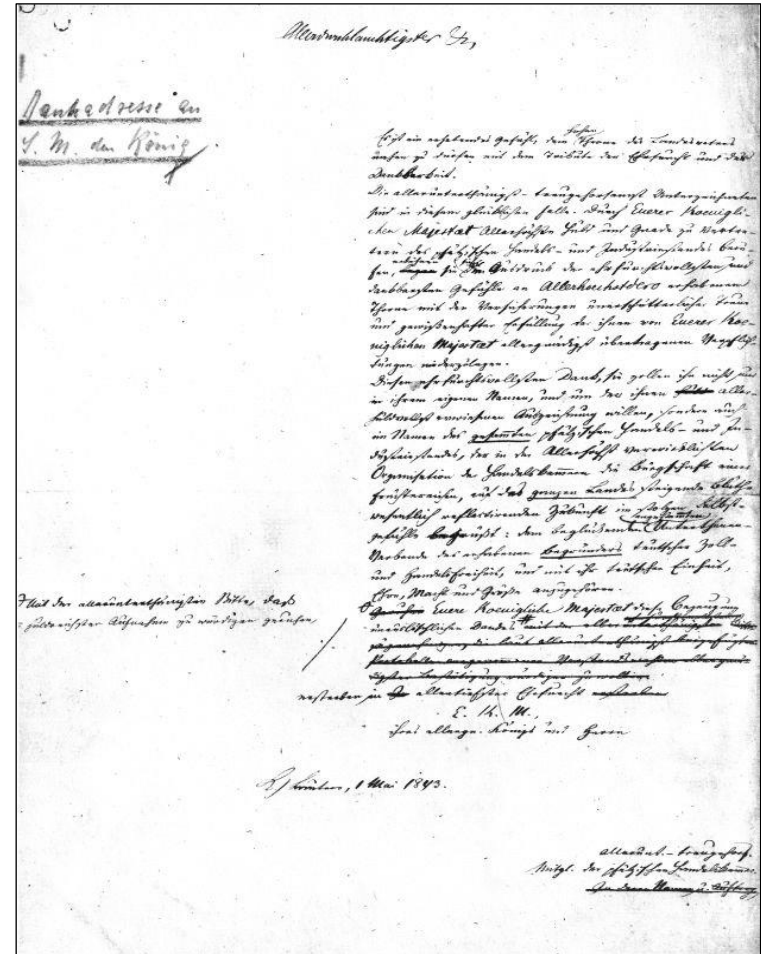 Allerdurchlauchtigster &c,
Dankadresse an
S. M. den König.
Es ist ein erhebendes Gefühl, dem hohen Throne des Landesvaters
nahen zu dürfen mit dem Tribute der Ehrfurcht und der
Dankbarkeit.
Die allerunterthänigst-treugehorsamst Unterzeichneten
sind in diesem glücklichen Falle. Durch Euerer Koenigli-
chen Majestaet Allerhöchste Huld und Gnade zu Vertre-
tern des pfälzischen Handels- und Industriestandes beru-
fen, sie den Ausdruck der ehrfurchtsvollsten und
dankbarsten Gefühle an Allerhoechstdero erhabenem
Throne mit der Versicherung unerschütterlicher Treue
und gewissenhafter Erfüllung der ihnen von Euerer Koe-
niglichen Majestaet allergnädigst übertragenen Verpflich-
tungen niederzulegen.
Diesen ehrfurchtsvollsten Dank, sie zollen ihn nicht nur
in ihrem eigenen Namen, und um der ihnen aller-
huldvollst erwiesenen Auszeichnung willen, sondern auch
im Namen des gesammten pfälzischen Handels- und In-
dustriestandes, der in der Allerhöchst verwirklichten
Organisation der Handelskammer die Bürgschaft einer
, auf des ganzen Landes steigende Blüthe
wesentlich reflectirenden Zukunft im stolzen Selbst-
gefühle begrüßt: dem beglückenden Unterthanen-
Verbande des erhabenen Begründers teutscher Zoll-
und Handelsfreiheit, und mit ihr teutscher Einheit,
Ehre, Macht und Größe anzugehören.
Euere Koenigliche Majestaet diese Bezeugung
unauslöschlichen Dankes mit der
Mit der allerunterthänigsten Bitte, daß
Aufnahme zu würdigen geruhen
ersterben in allertiefster Ehrfurcht
E. K. M.,
ihres allergn. Königs und Herrn
K/lautern, 1 Mai 1843.
allerunt.-treugehors.
Mitgl. der pfälzischen Handelskammer
In deren Namen u. Auftrag